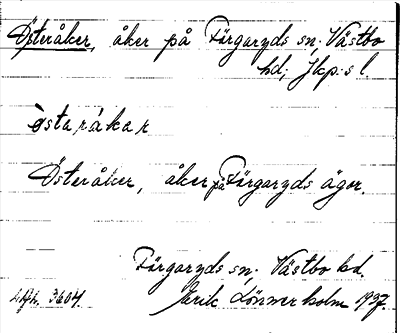 Österåker, åker på Färgaryds sn; Västbo
hd; Jkp:s l.
östaråkar
Österåker, åker på Färgaryds ägor.
Färgaryds sn; Västbo hd.
3604. Erik Lönnerholm 1937.